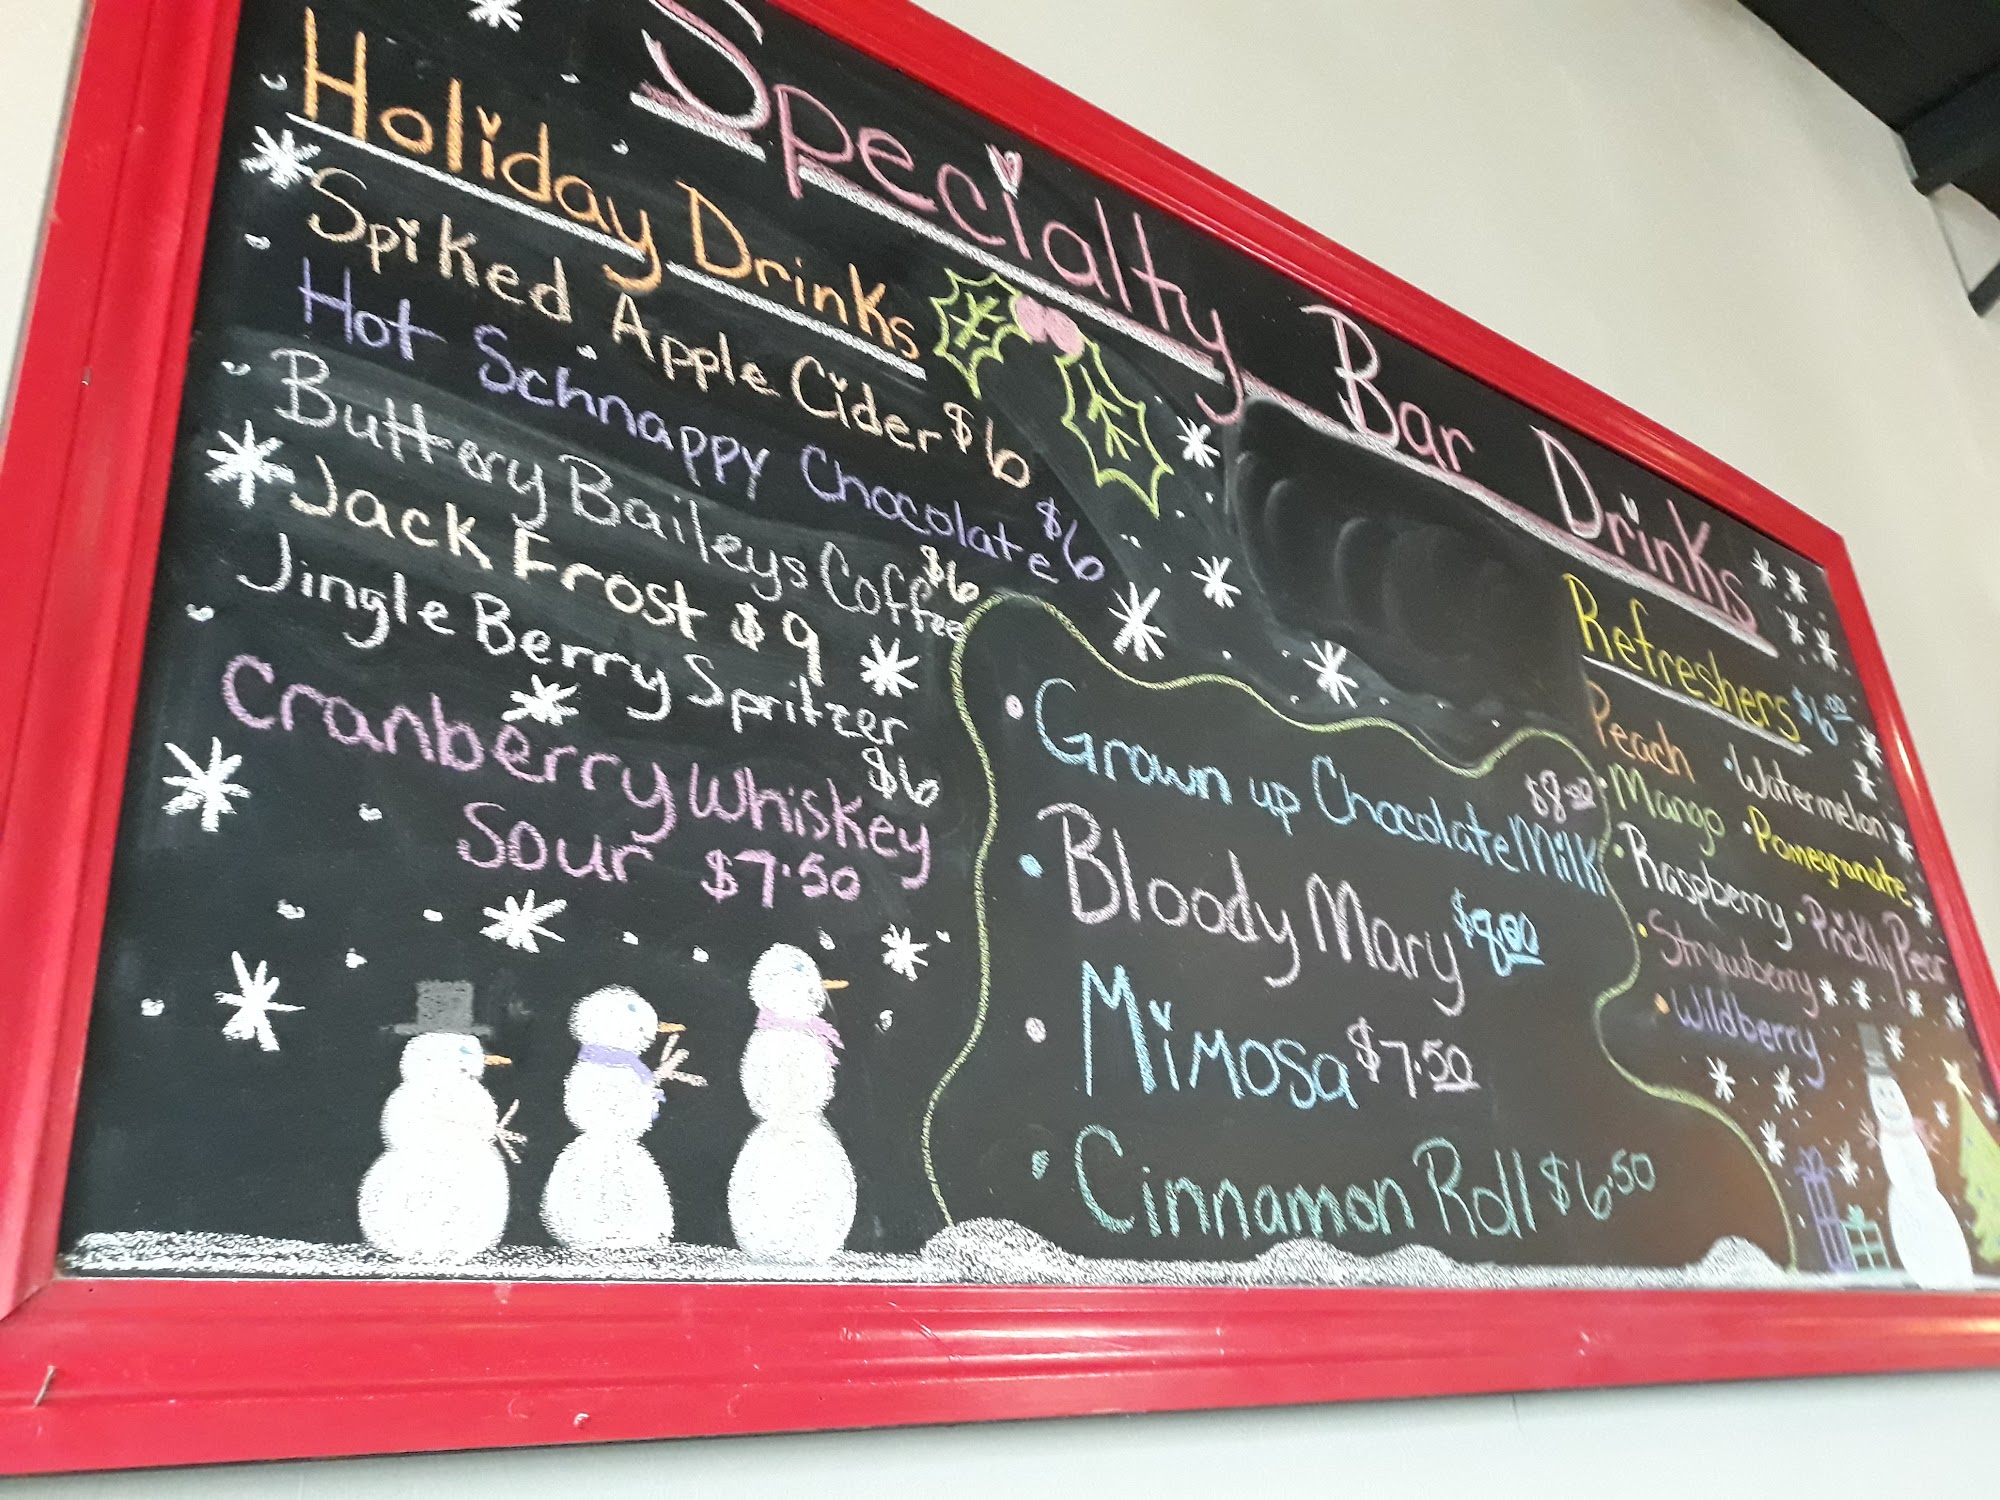 Specialty Bar Drinks
Holiday Drinks
Spiked Apple Cider $6
Hot Schnappy Chocolate $6
Buttery Baileys Coffee $6
Jack Frost $9
Jingle Berry Spritzer $6
Cranberry Whiskey
Sour $7.50
Grown up Chocolate Milk $8.50
Bloody Mary $9.00
Mimosa $7.50
Cinnamon Roll $6.50
Refreshers $6.00
Peach • Watermelon
• Mango • Pomegranate
• Raspberry • Prickly Pear
• Strawberry
• Wildberry